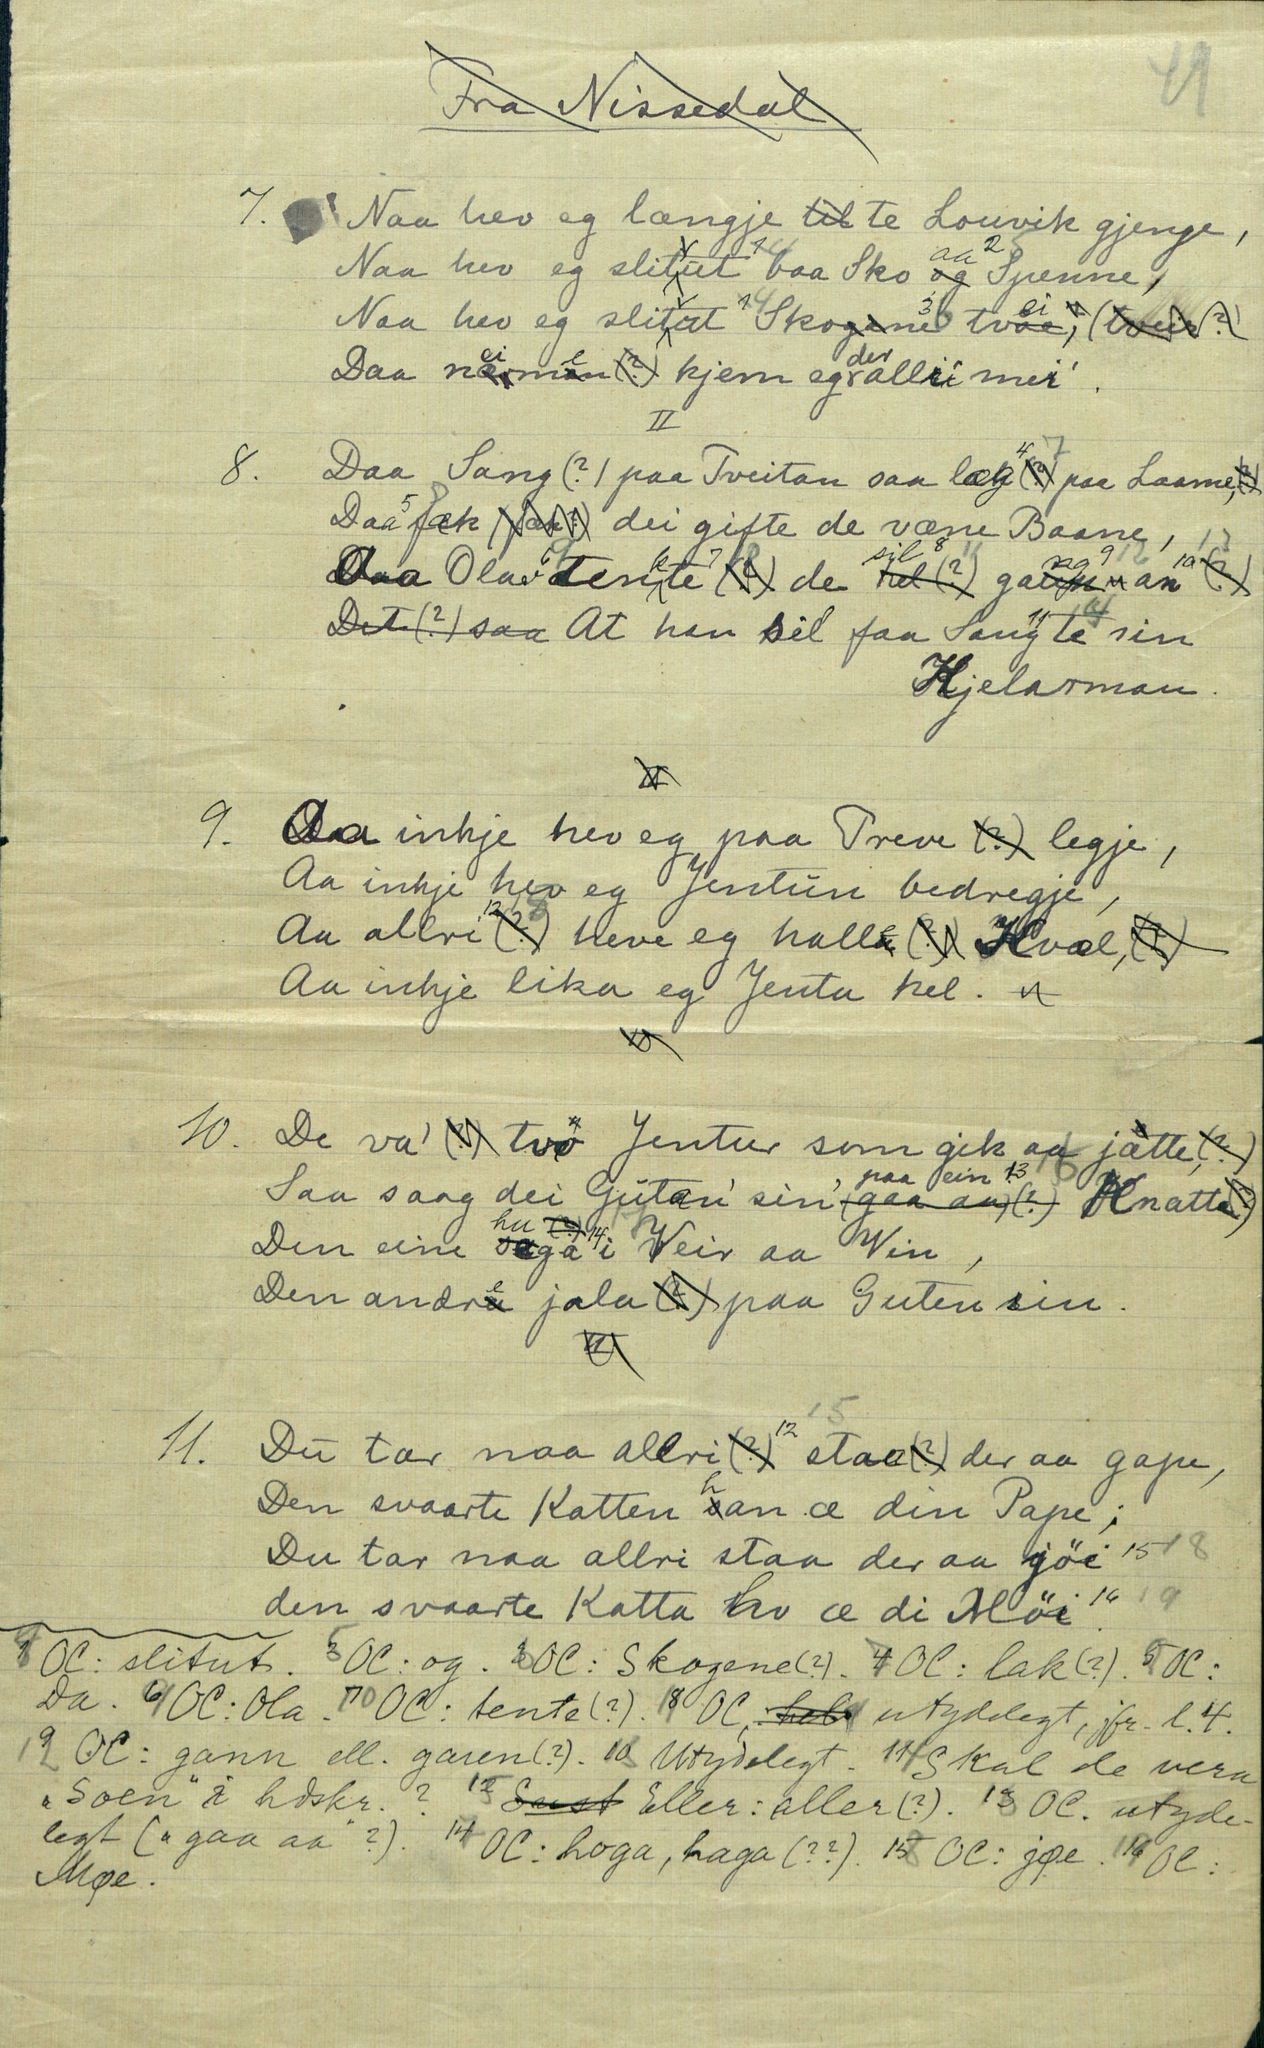 49
Fra Nissedal
7. Naa hev eg længje til te Louvik gjenge,
Naa hev eg slit ut 1 baa Sko og aa 2 Spenne,
Naa hev eg slit ut 1 Skogene 3 tvoei, (tvei ?)
Daa neimen (?) kjem eg der allri mei'.
II
8. Daa Sang (?) paa Tveitan saa læg 4 (?) paa Laame, (?)
Daa 5 fæk (fæk ?) dei gifte de væne Baane,
Aa Olav 6 tenkte 7 (?) de hel (?) sil 8 ga 9 an 10 (?)
Det (?) saa At han sil faa Sang 11 te sin
Hjelarman.
9. Aa inkje hev eg paa Treve (?) legje,
Aa inkje hev eg Jentun bedregje,
Aa allri 12 (?) heve eg halle (?) Hvæl, (?)
Aa inkje lika eg Jenta hel.
10. De va' (?) två Jentur som gjek aa jatte, (?)
Saa saag dei Gutan' sin' (gaa aa) (?) paa ein 13 Knatte (?)
Den eine hu (?) saga 14 i Veir aa Vin,
Den andre jala (?) paa Guten sin.
11. Du tar naa allri (?) 12 staa (?) der aa gape,
Den svaarte Katten han æ din Pape;
Du tar naa allri staa der aa jöi 15
den svaarte Katta ho æ di Möi. 16
1 OC: slitut. 2 OC: og. 3 OC: Skogene (?). 4 OC: lak (?). 5 OC:
Da. 6 OC: Ola. 7 OC: tente (?). 8 OC, hel utydelegt, jfr. l. 4.
9 OC: gann ell. garen (?). 10 Utydelegt. 11 Skal de vera
"Soen" i hdskr. ? 12 Eller: aller (?). 13 OC. utyde-
legt ("gaa aa" ?). 14 OC: hoga, haga (??). 15 OC: jøe. 16 OC:
Møe.